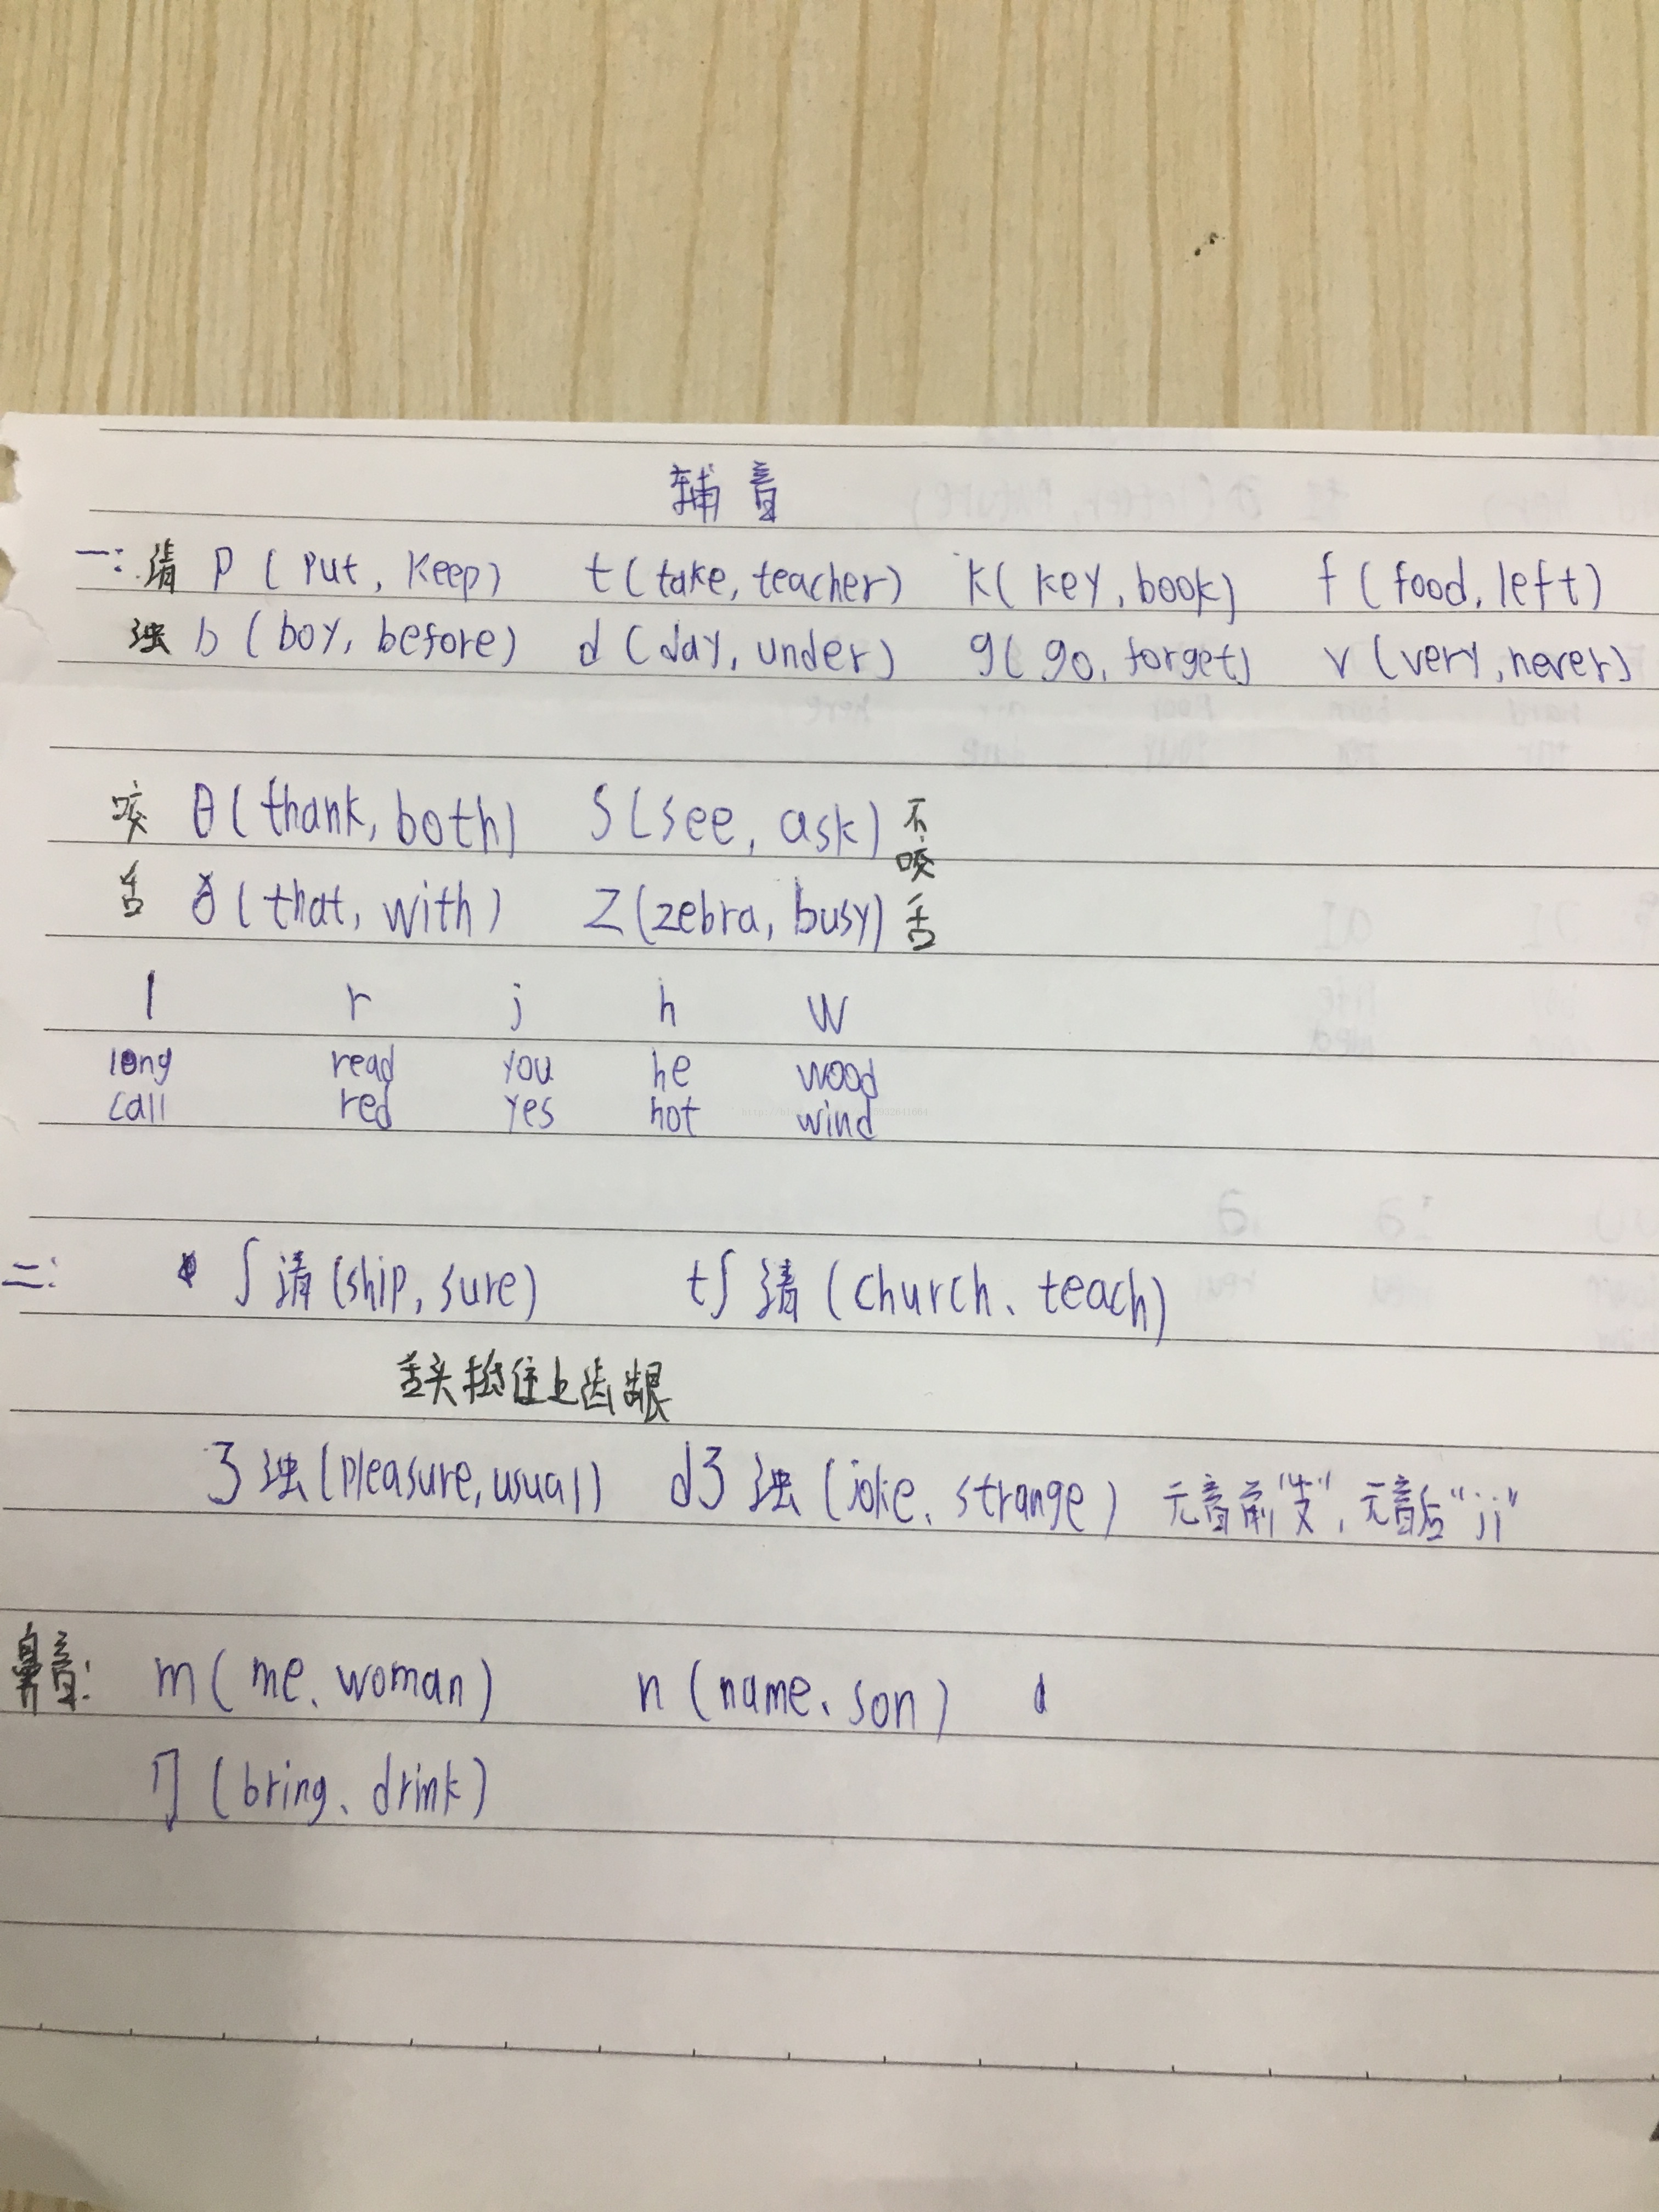 辅音
一: 清 p (put, keep) t (take, teacher) k (key, book) f (food, left)
浊 b (boy, before) d (day, under) g (go, forget) v (very, never)
咬 θ (thank, both) s (see, ask) 不咬
舌 ð (that, with) z (zebra, busy) 舌
l r j h w
long read you he wood
call red yes hot wind
二: ʃ 清 (ship, sure) tʃ 清 (church、teach)
舌头抵住上齿龈
ʒ 浊 (pleasure, usual) dʒ 浊 (joke、strange) 元音前"支", 元音后"ji"
鼻音: m (me、woman) n (name、son)
ŋ (bring、drink)